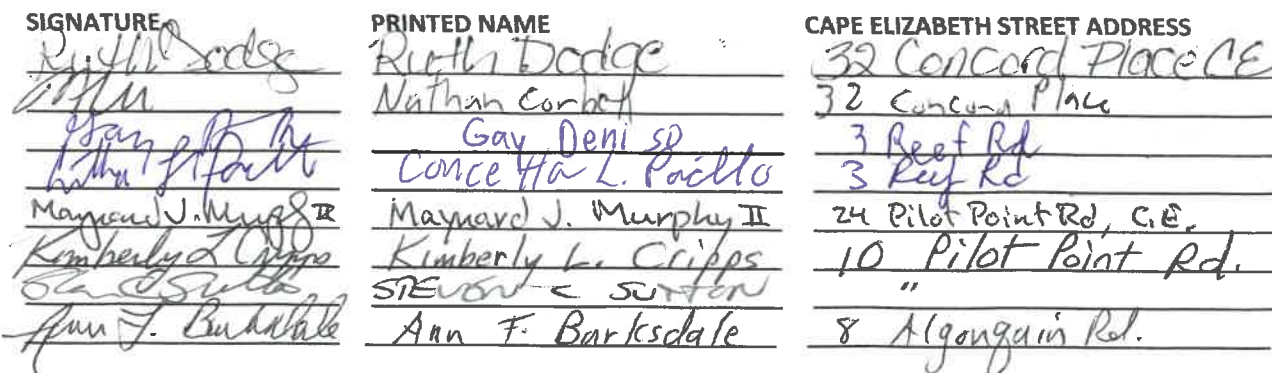 SIGNATURE PRINTED NAME CAPE ELIZABETH STREET ADDRESS
Ruth Dodge Ruth Dodge 32 Concord Place CE
Nathan Corbett 32 Concord Place
Gay Deniso 3 Reef Rd
Concetta L. Pacillo 3 Reef Rd
Maynard J. Murphy II Maynard J. Murphy II 24 Pilot Point Rd, C.E.
Kimberly L Cripps Kimberly L. Cripps 10 Pilot Point Rd.
STEVEN C SUTTON "
Ann F. Barksdale Ann F. Barksdale 8 Algonquin Rd.